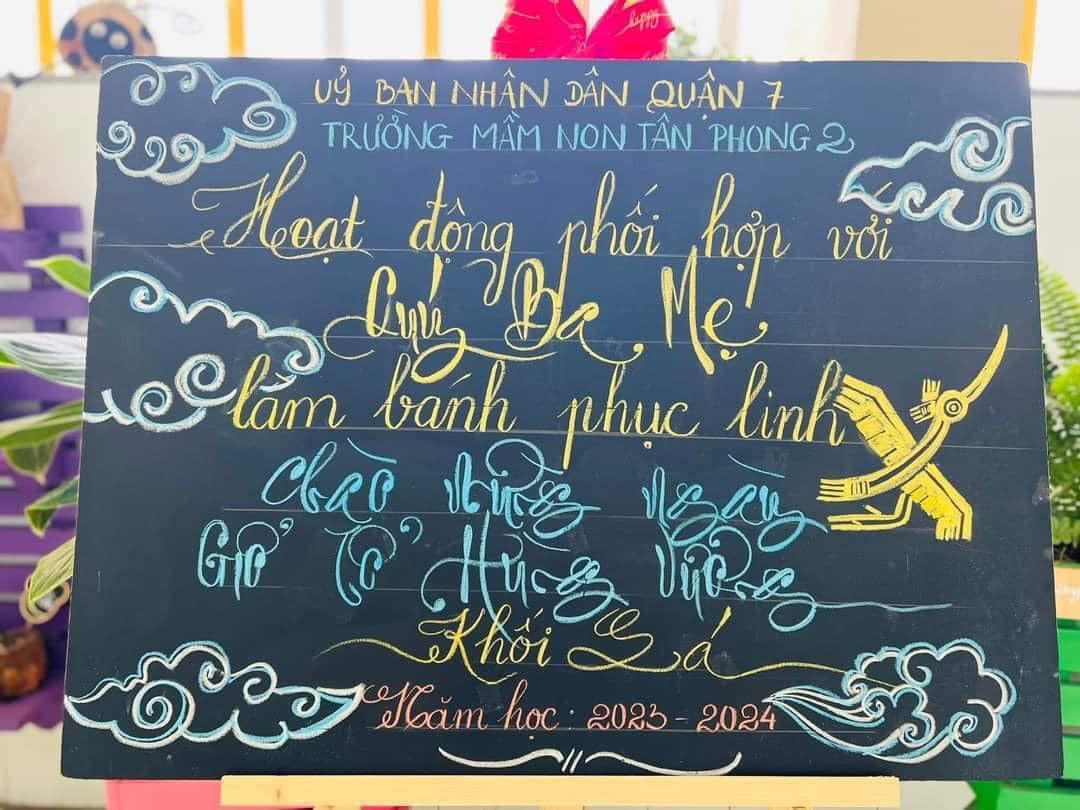 happy
UỶ BAN NHÂN DÂN QUẬN 7
TRƯỜNG MẦM NON TÂN PHONG 2
Hoạt động phối hợp với
Quý Ba Mẹ
làm bánh phục linh
chào mừng ngày
Giỗ Tổ Hùng Vương
Khối Lá
Năm học: 2023 - 2024